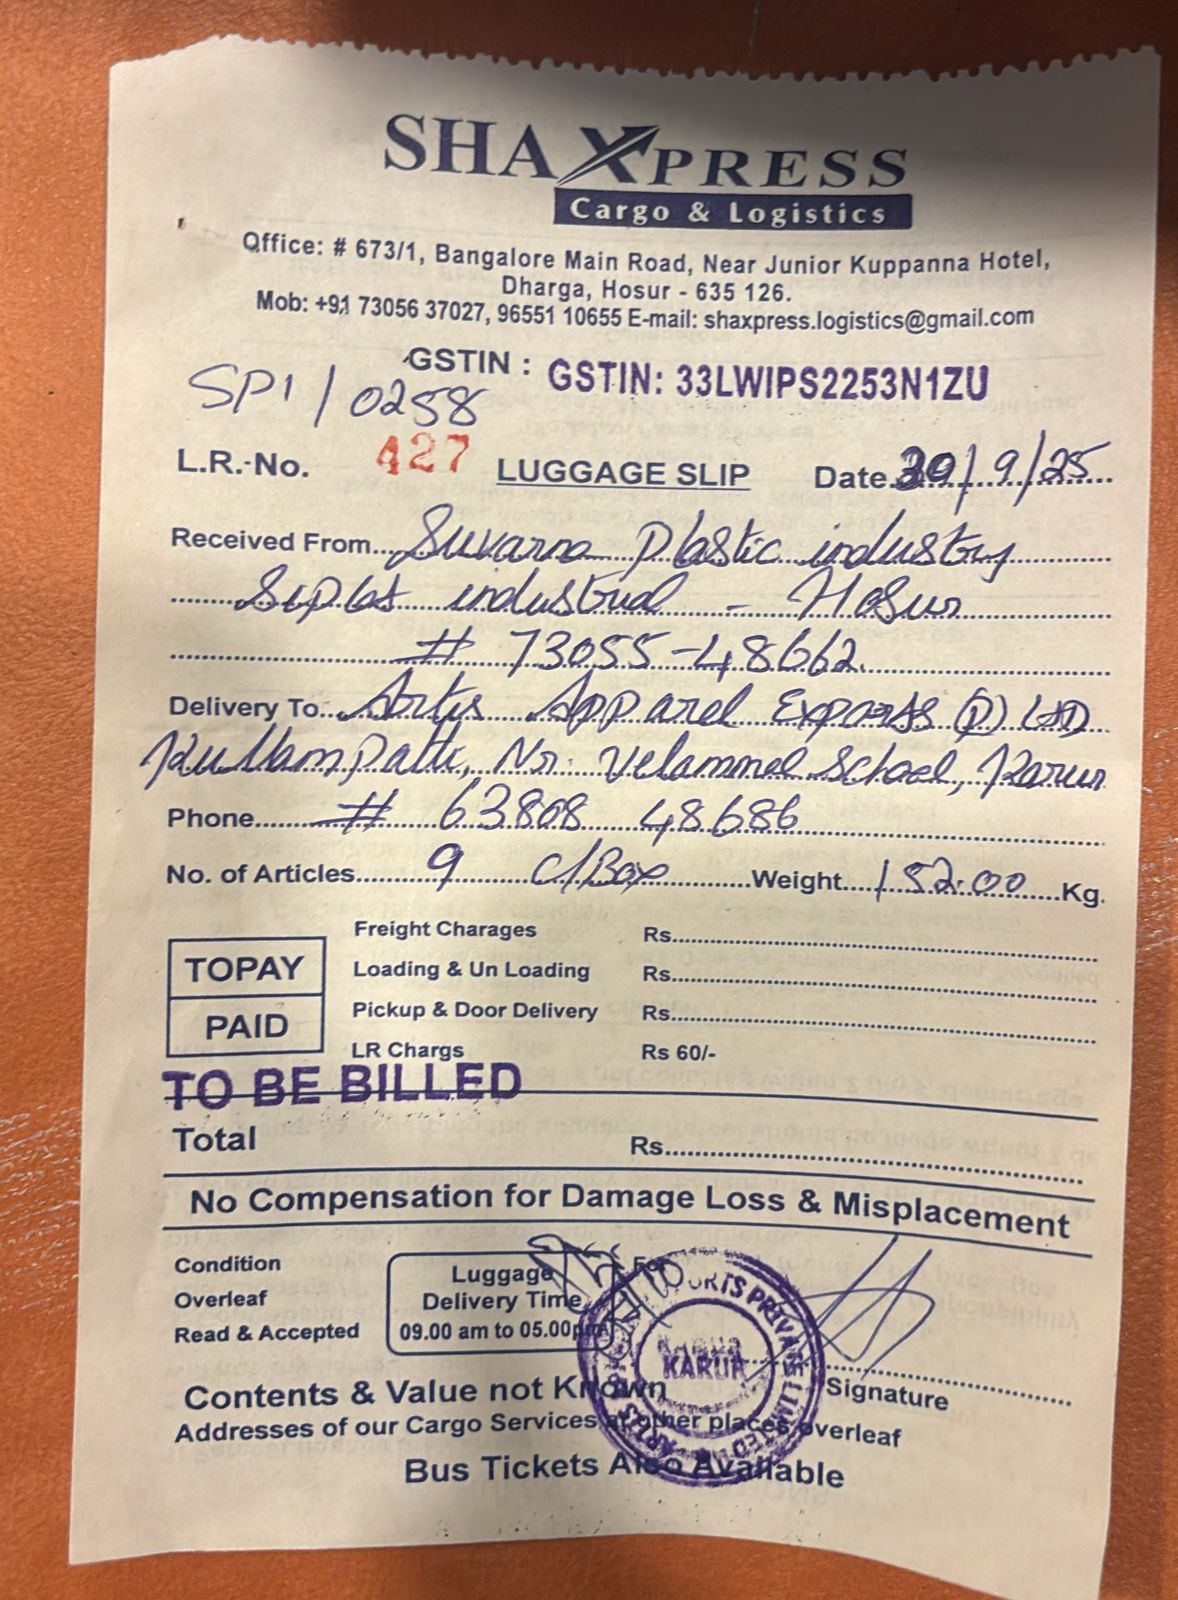 SHAXPRESS
Cargo & Logistics
Office: # 673/1, Bangalore Main Road, Near Junior Kuppanna Hotel,
Dharga, Hosur - 635 126.
Mob: +91 73056 37027, 96551 10655 E-mail: shaxpress.logistics@gmail.com
GSTIN : GSTIN: 33LWIPS2253N1ZU
SP1/0258
L.R.-No. 427 LUGGAGE SLIP Date 30/9/25
Received From Suvarna Plastic industry
industrial - Hosur
# 73055-48662
Delivery To Apparel Exports (P) LTD
Nr. Velammal School, Karur
Phone # 63808 48686
No. of Articles 9 c/Box Weight 152.00 Kg.
Freight Charages Rs.
TOPAY Loading & Un Loading Rs.
PAID Pickup & Door Delivery Rs.
LR Chargs Rs 60/-
TO BE BILLED
Total Rs.
No Compensation for Damage Loss & Misplacement
Condition
Overleaf
Read & Accepted
Luggage
Delivery Time
09.00 am to 05.00pm
For
KARUR
Signature
Contents & Value not Known
Addresses of our Cargo Services at other places overleaf
Bus Tickets Also Available